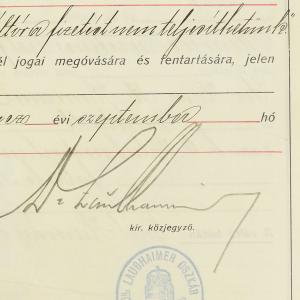 a fizetést nem teljesíthetünk"
él jogai megóvására és fentartására, jelen
évi szeptember hó
Dr Laubhaimer
kir. közjegyző.
DR. LAUBHAIMER OSZKÁR